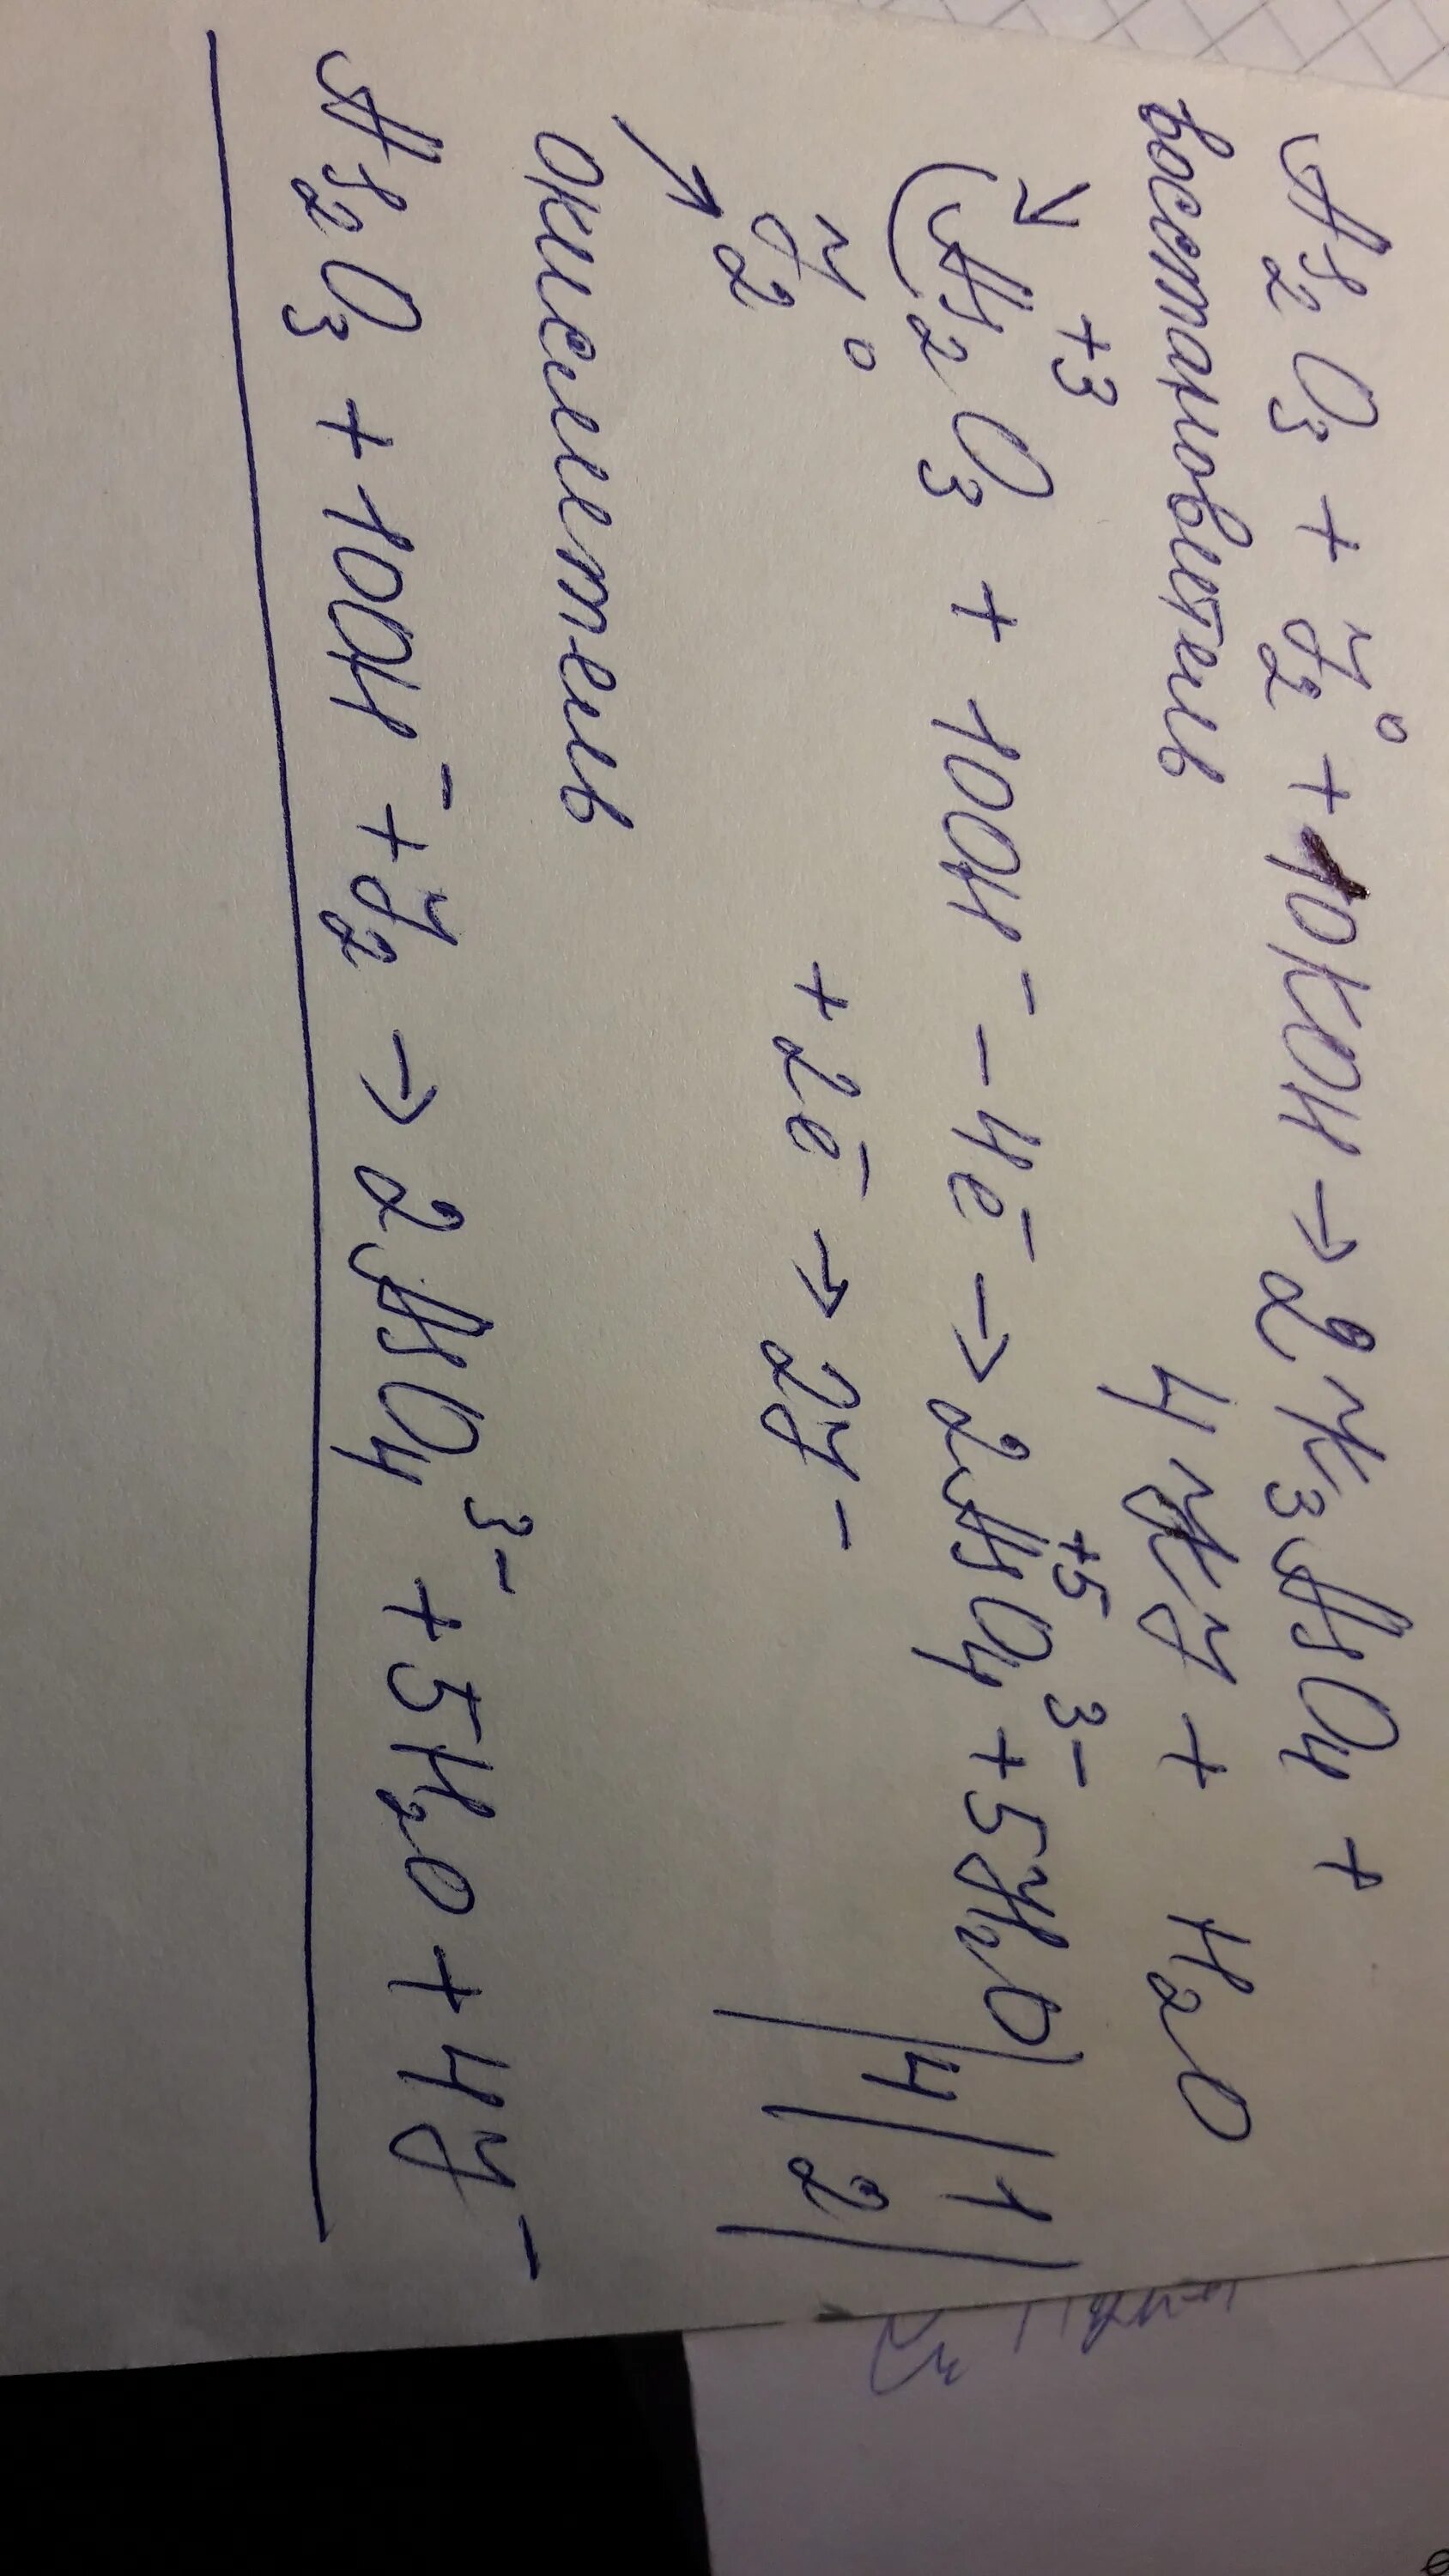 As₂O₃ + J₂⁰ + 10KOH → 2K₃AsO₄ +
4KJ + H₂O
восстановитель
↘ (As₂⁺³O₃ + 10OH⁻ – 4e⁻ → 2As⁺⁵O₄³⁻ + 5H₂O | 4 | 1
J₂⁰ + 2e⁻ → 2J⁻ | 2
↗
окислитель
As₂O₃ + 10OH⁻ + J₂ → 2AsO₄³⁻ + 5H₂O + 4J⁻